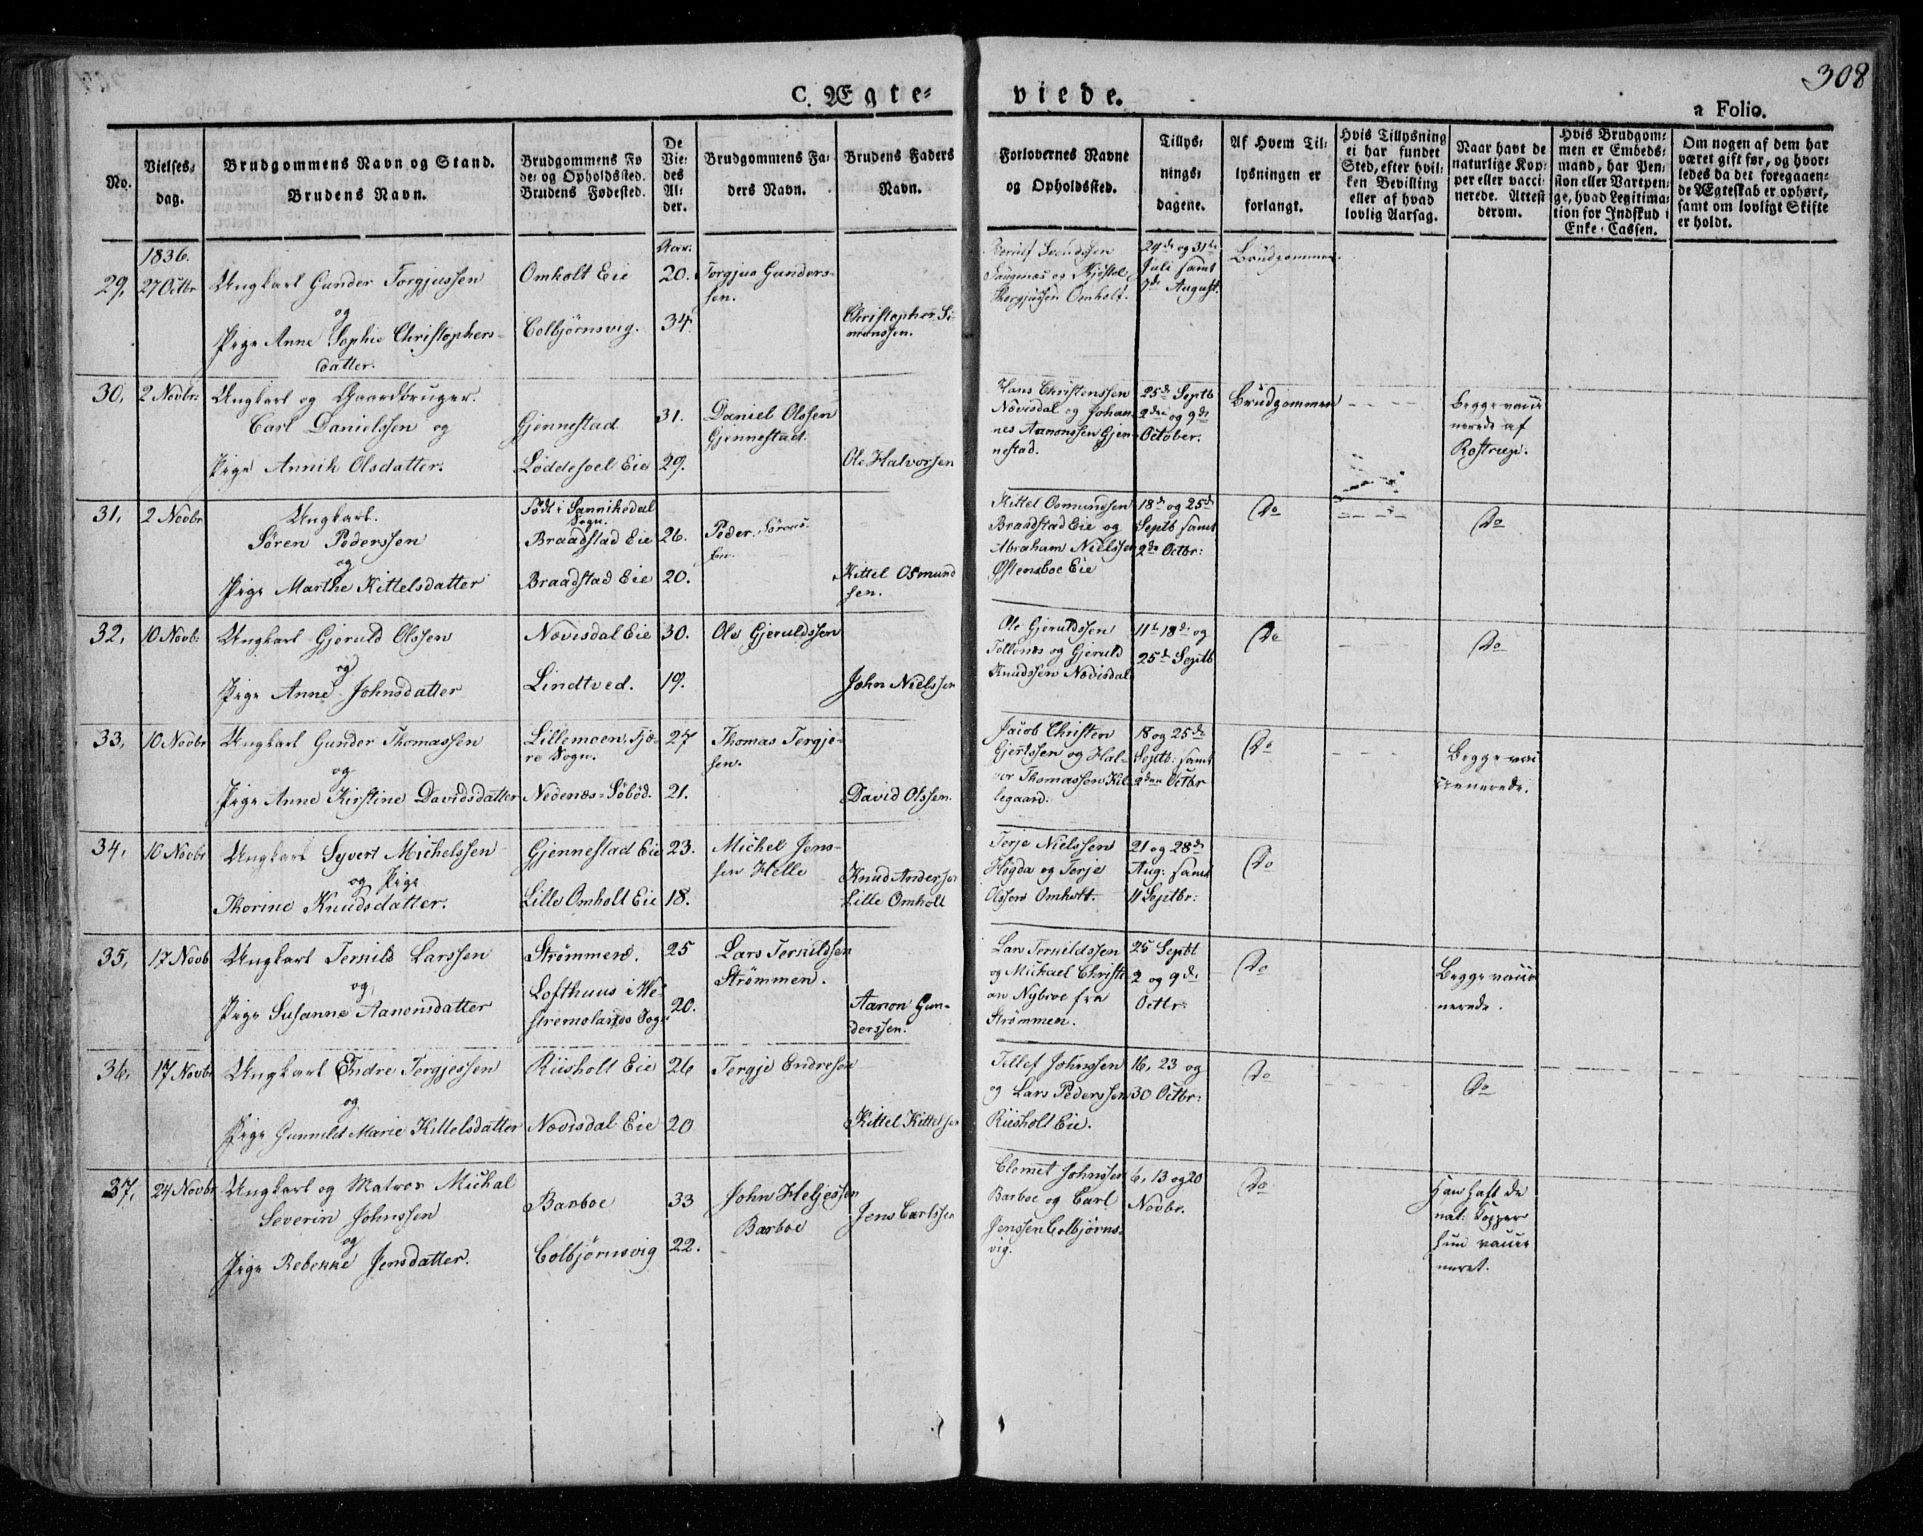 308
C. Ægte-
viede.
a Folio.
No.
Vielses-
dag.
Brudgommens Navn og Stand.
Brudens Navn.
Brudgommens Fø
de- og Opholdssted.
Brudens Fødested.
De
Vie-
des
Al-
der.
Brudgommens Fa-
ders Navn.
Brudens Faders
Navn.
Forlovernes Navne
og Opholdssted.
Tillys-
nings-
dagene.
Af Hvem Til-
lysningen er
forlangt.
Hvis Tillysning
ei har fundet
Sted, efter hvil-
ken Bevilling
eller af hvad
lovlig Aarsag.
Naar havt de
naturlige Kop-
per eller vacci-
nerede. Attest
derom.
Hvis Brudgom-
men er Embeds-
mand, har Pen-
sion eller Vartpen-
ge, hvad Legitima-
tion for Indskud i
Enke-Cassen.
Om nogen af dem har
været gift før, og hvor-
ledes da det foregaaen-
de Ægteskab er ophørt,
samt om lovligt Skifte
er holdt.
1836.
29,
27 Octbr
Ungkarl Gunder Torgjussen
og
Pige Anne Sophie Christophers-
datter.
Omholt Eie
Colbjørnsvig.
Aar.
20.
34
Torgjus Gunders-
sen.
Christopher Si-
monssen.
og Kjøstel
Torgjussen Omholt.
24de og 31te
Juli samt
7de August.
Brudgommen
30,
2 Novbr:
Ungkarl og Gaardbruger.
Carl Danielssen og
Pige Annik Olsdatter.
Gjennestad
Løddesoel Eie
31.
29.
Daniel Olssen
Gjennestad.
Ole Halvorsen
Hans Christenssen
Nøvisdal og Johan-
nes Aanonssen Gjen-
nestad.
25de Septb
2den og 9de
October.
Brudgommen
Begge vacci
nerede af
Rostrup.
31,
2 Novbr
Ungkarl.
Søren Pederssen
og
Pige Marthe Kittelsdatter
Født i Sannikedal
Sogn.
Braadstad Eie
Braadstad Eie
26.
20.
Peder Sørens-
sen.
Kittel Osmund
sen.
Kittel Osmundsen
Braadstad Eie og
Abraham Nielssen
Østensboe Eie
18de og 25de
Septb samt
2den Octbr:
Do
Do
32,
10 Novb:
Ungkarl Gjeruld Olssen
og
Pige Anne Johnsdatter
Nøvisdal Eie
Lindtved.
30.
19.
Ole Gjeruldssen
John Nielssen
Ole Gjeruldssen
Tellenæs og Gjeruld
Knudssen Nøvisdal
11te 18de og
25de Septb
Do
Do
33,
10 Novbr
Ungkarl Gunder Thomassen
og
Pige Anne Kirstine Davidsdatter
Lillemoen, Fjæ-
re Sogn.
Nedenæs-Søbød.
27
21.
Thomas Tergje-
sen.
David Olssen.
Jacob Christen
Gjertssen og Hal-
vor Thomassen Kil-
legaard.
18 og 25de
Septb: samt
2den Octbr
Do
Begge vac
cinerede.
34,
10 Novbr
Ungkarl Syvert Michelssen
og Pige
Thorine Knudsdatter.
Gjennestad Eie
Lille Omholt Eie
23.
18.
Michel Jens-
sen Helle
Knud Andersen
Lille Omholt
Terje Nielssen
Høgda og Terje
Olssen Omholt.
21 og 28de
Aug: samt
4 Septbr:
Do
35,
17 Novb
Ungkarl Terkild Larssen
og
Pige Susanne Aanonsdatter
Strømmen.
Lofthuus i We-
stremolands Sogn
25
20.
Lars Terkildsen
Strømmen.
Aanon Gun-
derssen.
Lars Terkildssen
og Michael Christi-
an Nybroe fra
Strømmen.
25 Septbl
2 og 9de
Octbr:
Do
Begge vacci
nerede.
36,
17 Novbr
Ungkarl Endre Tergjessen
og
Pige Gunnild Marie Kittelsdatter
Riisholt Eie
Nøvisdal Eie
26
20
Tergje Endresen
Kittel Kittelsen
Tellef Johnssen
og Lars Pederssen
Riisholt Eie.
16, 23 og
30 Octbr:
Do
Do
37,
24 Novbr
Ungkarl og Matros Michal
Severin Johnssen
og
Pige Rebekke Jensdatter.
Barboe
Colbjørnsvig
33
22.
John Heljessen
Barboe
Jens Carlssen
Clemet Johnssen
Barboe og Carl
Jenssen Colbjørns-
vig.
6, 13 og 20
Novbr.
Do
Han haft de
nat: Kopper
hun vacci
neret.